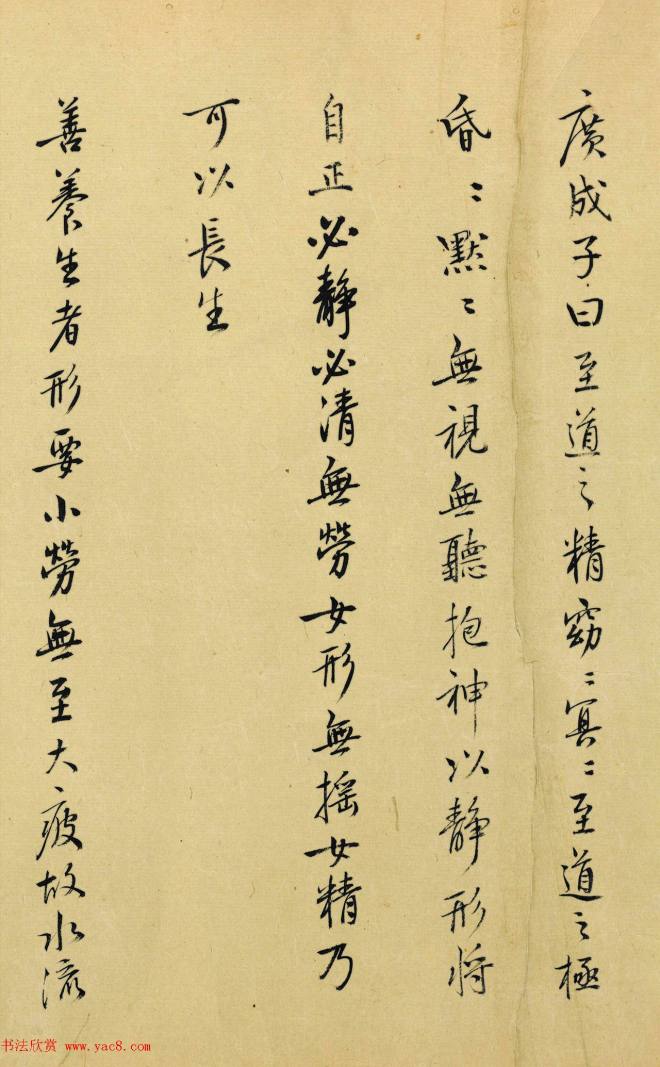 廣成子曰至道之精窈〻冥〻至道之極
昏〻默〻無視無聽抱神以静形将
自正必静必清無勞女形無摇女精乃
可以長生
善養生者形要小勞無至大疲故水流
书法欣赏 www.yac8.com